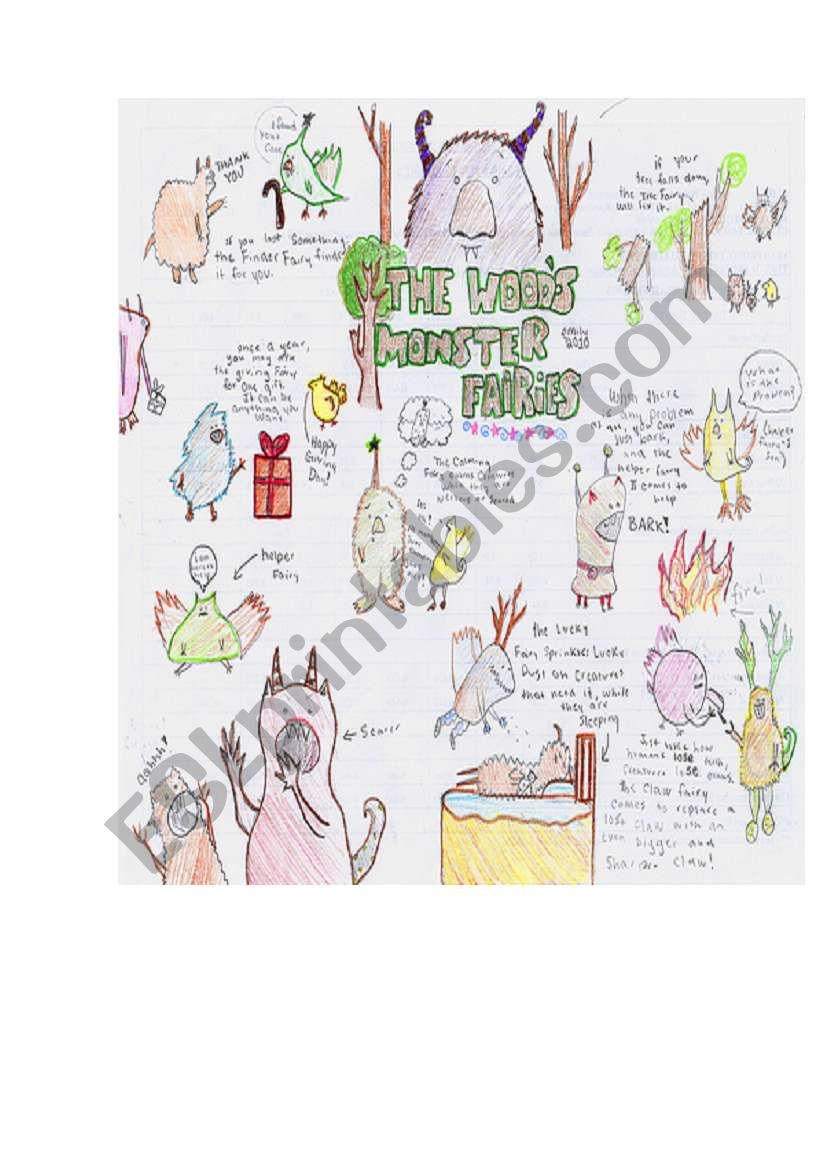 I found
your
Cane
THANK
YOU
if you lost something
the Finder Fairy finds
it for you.
if your
tree falls down,
the Tree Fairy
will fix it.
THE WOOD'S
MONSTER
FAIRIES
emily
2010
once a year,
you may ask
the giving Fairy
for one gift.
It can be
anything you
want.
Happy
Giving
Day!
The Calming
Fairy calms creatures
when they are
nervous or scared
When there
is any problem
at all, you can
just bark,
and the
helper fairy
comes to
help
What
is the
Problem?
BARK!
helper
Fairy
fire!
the Lucky
Fairy sprinkles Lucky
Dust on creatures
that need it, while
they are
sleeping
Scarer
aahhh!
Just like how
humans lose teeth,
Creatures lose claws,
the claw fairy
comes to replace a
lost claw with an
even bigger and
sharper claw!
ESLprintables.com